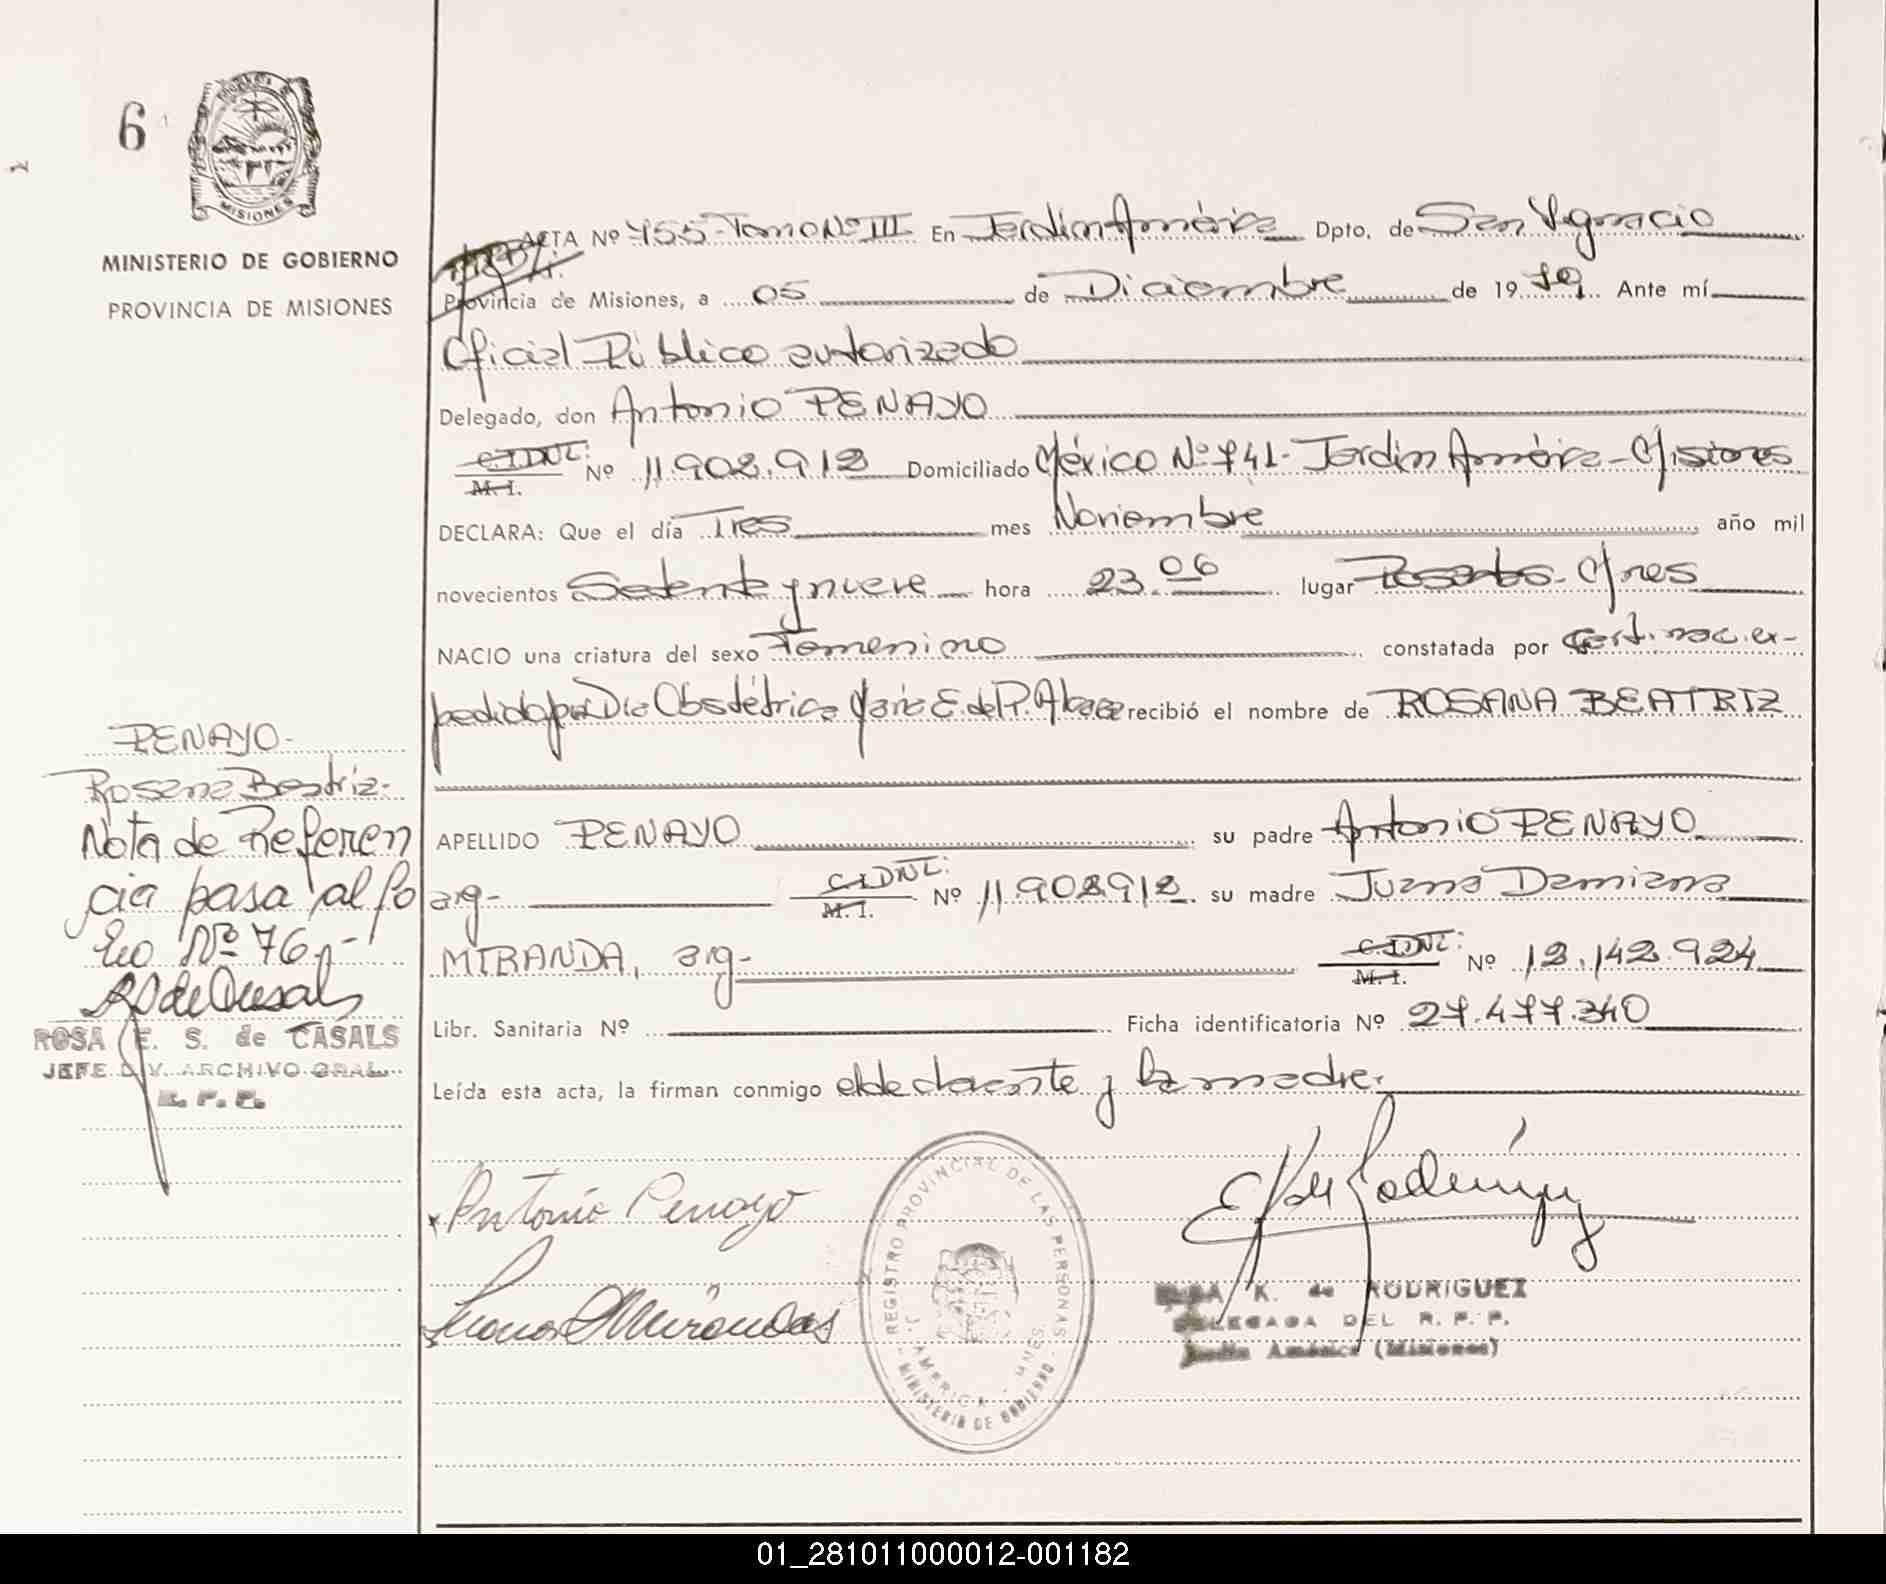 6
MISIONES
MINISTERIO DE GOBIERNO
PROVINCIA DE MISIONES
ACTA Nº 455-Tomo Nº III En Jardín América Dpto. de San Ignacio
Provincia de Misiones, a 05 de Diciembre de 1979 Ante mí
Oficial Público autorizado
Delegado, don Antonio PENAYO
C.I.DNI: M. I. Nº 11.902.912 Domiciliado México Nº 741- Jardín América-Misiones
DECLARA: Que el día Tres mes Noviembre año mil
novecientos Setenta y nueve hora 23.06 lugar Posadas- Mnes
NACIO una criatura del sexo Femenino constatada por Cert. nac. ex-
pedido por Dra Obstétrica María E. de P. recibió el nombre de ROSANA BEATRIZ
APELLIDO PENAYO su padre Antonio PENAYO
arg- C.I.DNI: M. I. Nº 11.902912 su madre Juana Damiana
MIRANDA, arg- C.I.DNI: M. I. Nº 12.142.924
Libr. Sanitaria Nº Ficha identificatoria Nº 27.477.340
Leída esta acta, la firman conmigo el declarante y la madre.
PENAYO-
Rosana Beatriz-
Nota de Referen
cia pasa al fo
lio Nº 76.-
ROSA E. S. de CASALS
JEFE DIV. ARCHIVO GRAL.
R. P. P.
Antonio Penayo
Juana D Miranda
REGISTRO PROVINCIAL DE LAS PERSONAS
J. AMERICA - MNES.
MINISTERIO DE GOBIERNO
K. de RODRIGUEZ
DELEGADA DEL R. P. P.
Jardín América (Misiones)
01_281011000012-001182